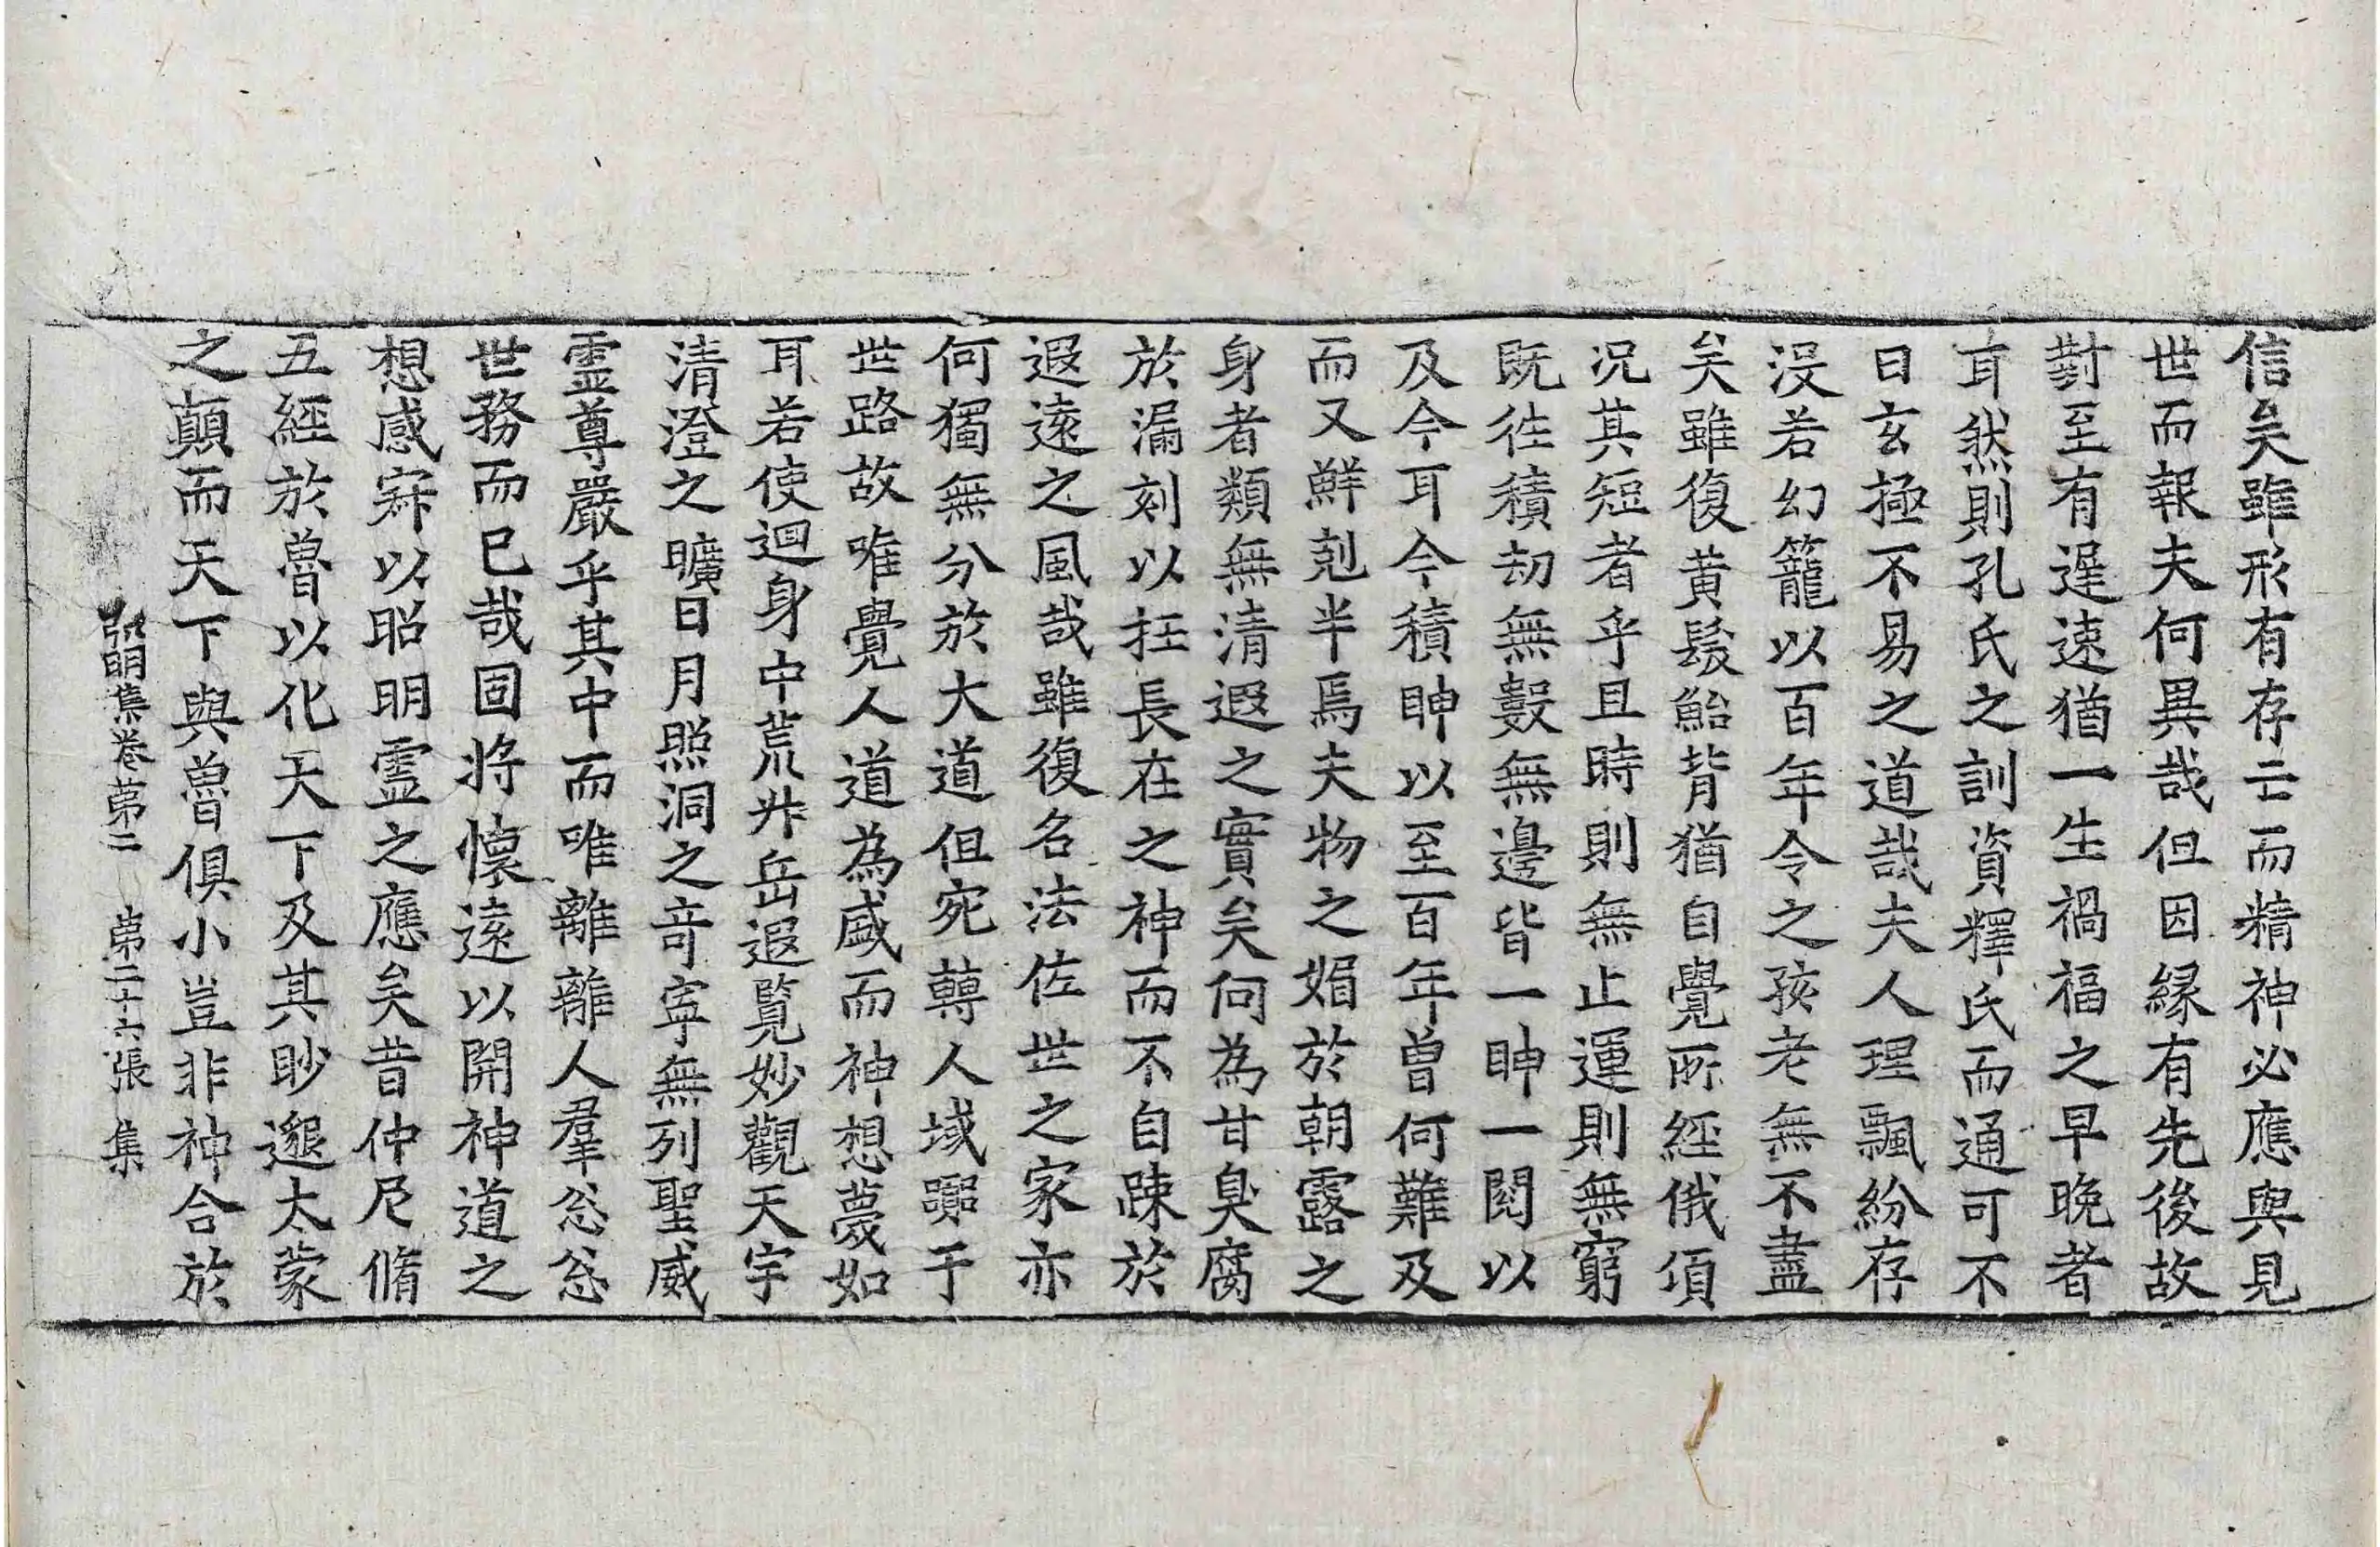 信矣雖形有存亡而精神必應與見
世而報夫何異哉但因緣有先後故
對至有遲速猶一生禍福之早晚者
耳然則孔氏之訓資釋氏而通可不
曰玄極不易之道哉夫人理飄紛存
沒若幻籠以百年令之孩老無不盡
矣雖復黃髮鮐背猶自覺所經俄頃
况其短者乎且時則無止運則無窮
既往積劫無數無邊皆一眒一閱以
及今耳今積眒以至百年曾何難及
而又鮮剋半焉夫物之媚於朝露之
身者類無清遐之實矣何為甘臭腐
於漏刻以抂長在之神而不自踈於
遐遠之風哉雖復名法佐世之家亦
何獨無分於大道但宛轉人域嚻于
世路故唯覺人道為盛而神想蔑如
耳若使迴身中荒升岳遐覽妙觀天宇
清澄之曠日月照洞之奇寧無列聖威
靈尊嚴乎其中而唯離離人羣忩忩
世務而已哉固將懷遠以開神道之
想感寂以昭明靈之應矣昔仲尼脩
五經於魯以化天下及其眇邈太蒙
之顛而天下與魯俱小豈非神合於
弘明集卷第二 第二十六張 集